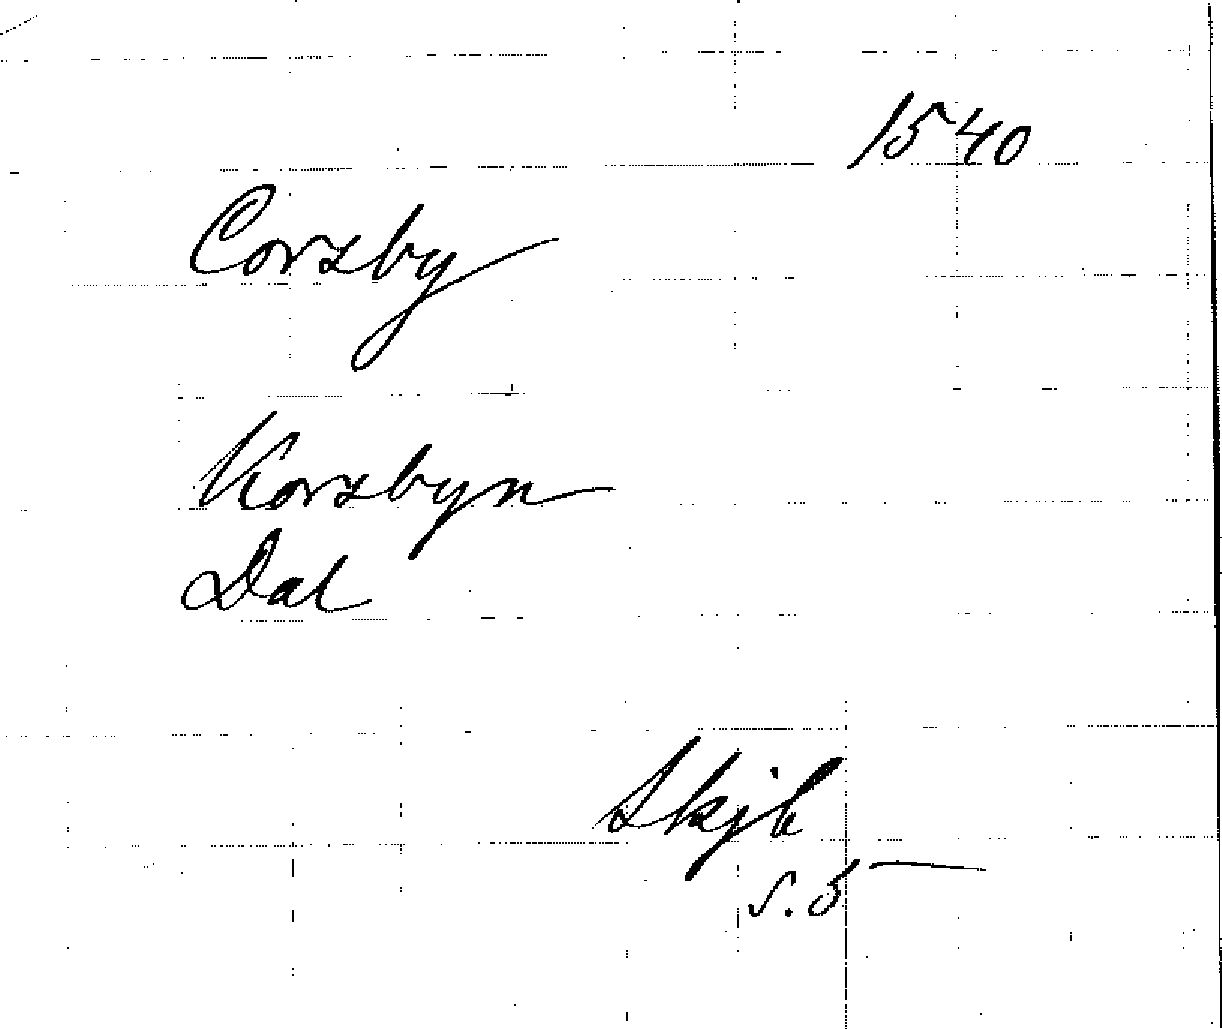 1540
Corsby
Korsbyn
Dal
Skjb
s. 5